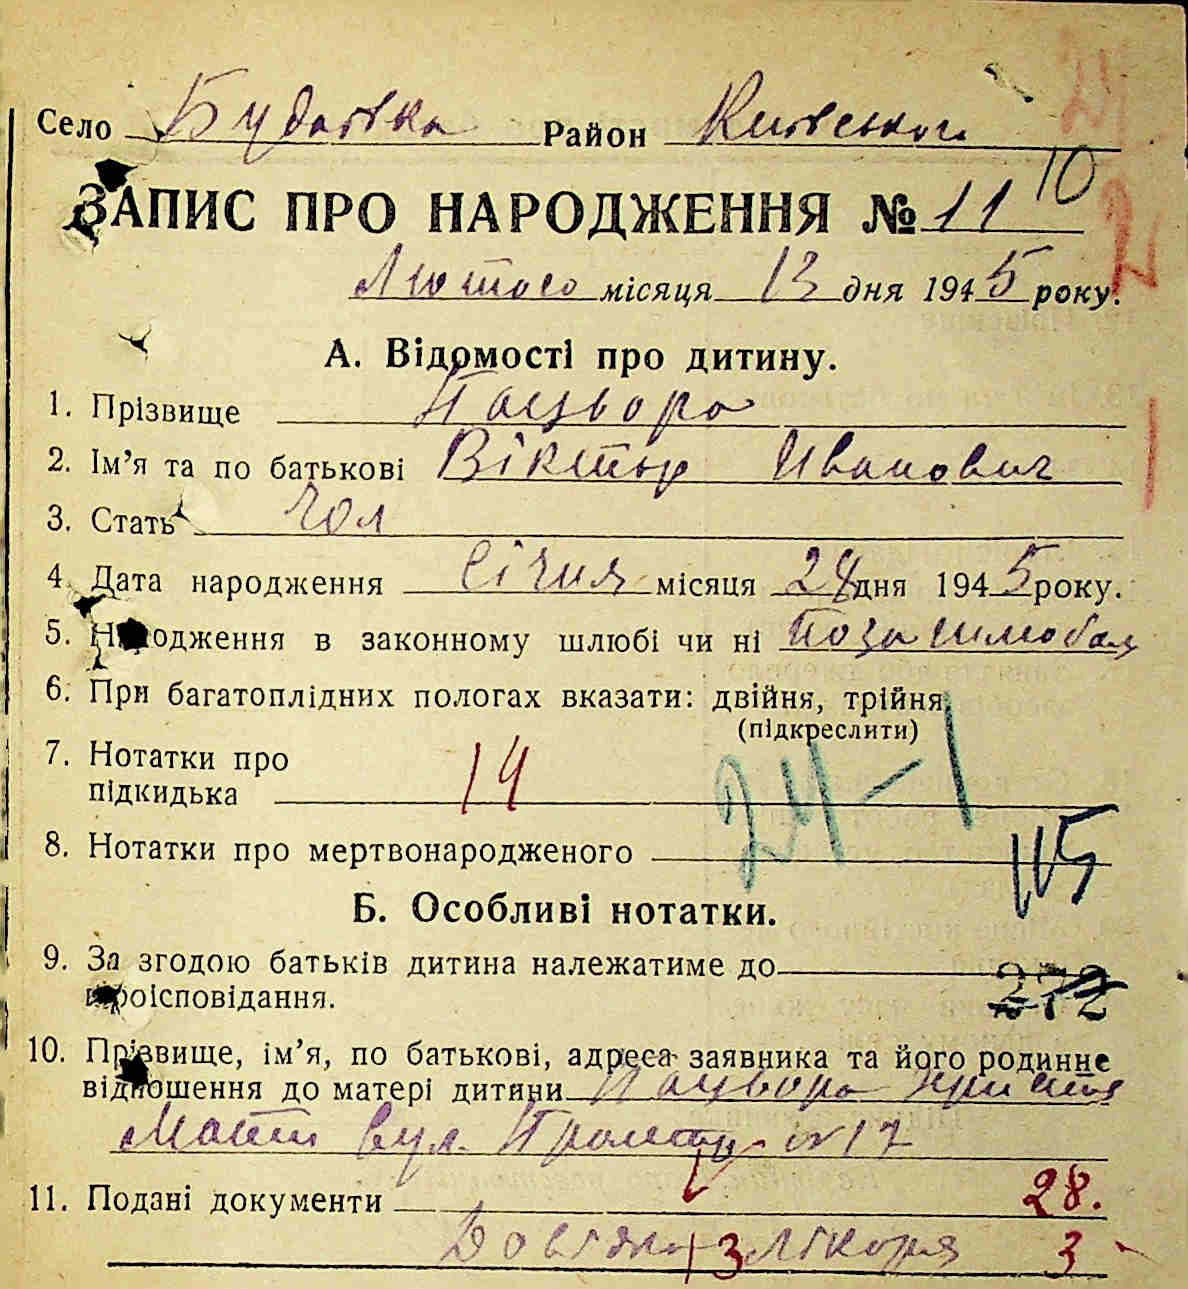 Село Будаївка Район Київського
10
ЗАПИС ПРО НАРОДЖЕННЯ № 11
Лютого місяця 13 дня 1945 року.
А. Відомості про дитину.
1. Прізвище
2. Ім’я та по батькові Віктор Иванович
3. Стать Чол
4. Дата народження Січня місяця 24 дня 1945 року.
5. Народження в законному шлюбі чи ні Поза шлюбом
6. При багатоплідних пологах вказати: двійня, трійня.
(підкреслити)
7. Нотатки про
підкидька 14
24-1
8. Нотатки про мертвонародженого
115
Б. Особливі нотатки.
9. За згодою батьків дитина належатиме до
віроісповідання. 272
10. Прізвище, ім’я, по батькові, адреса заявника та його родинне
відношення до матері дитини
Мати вул. № 17
11. Подані документи 28.
Довідка лікаря 13 3